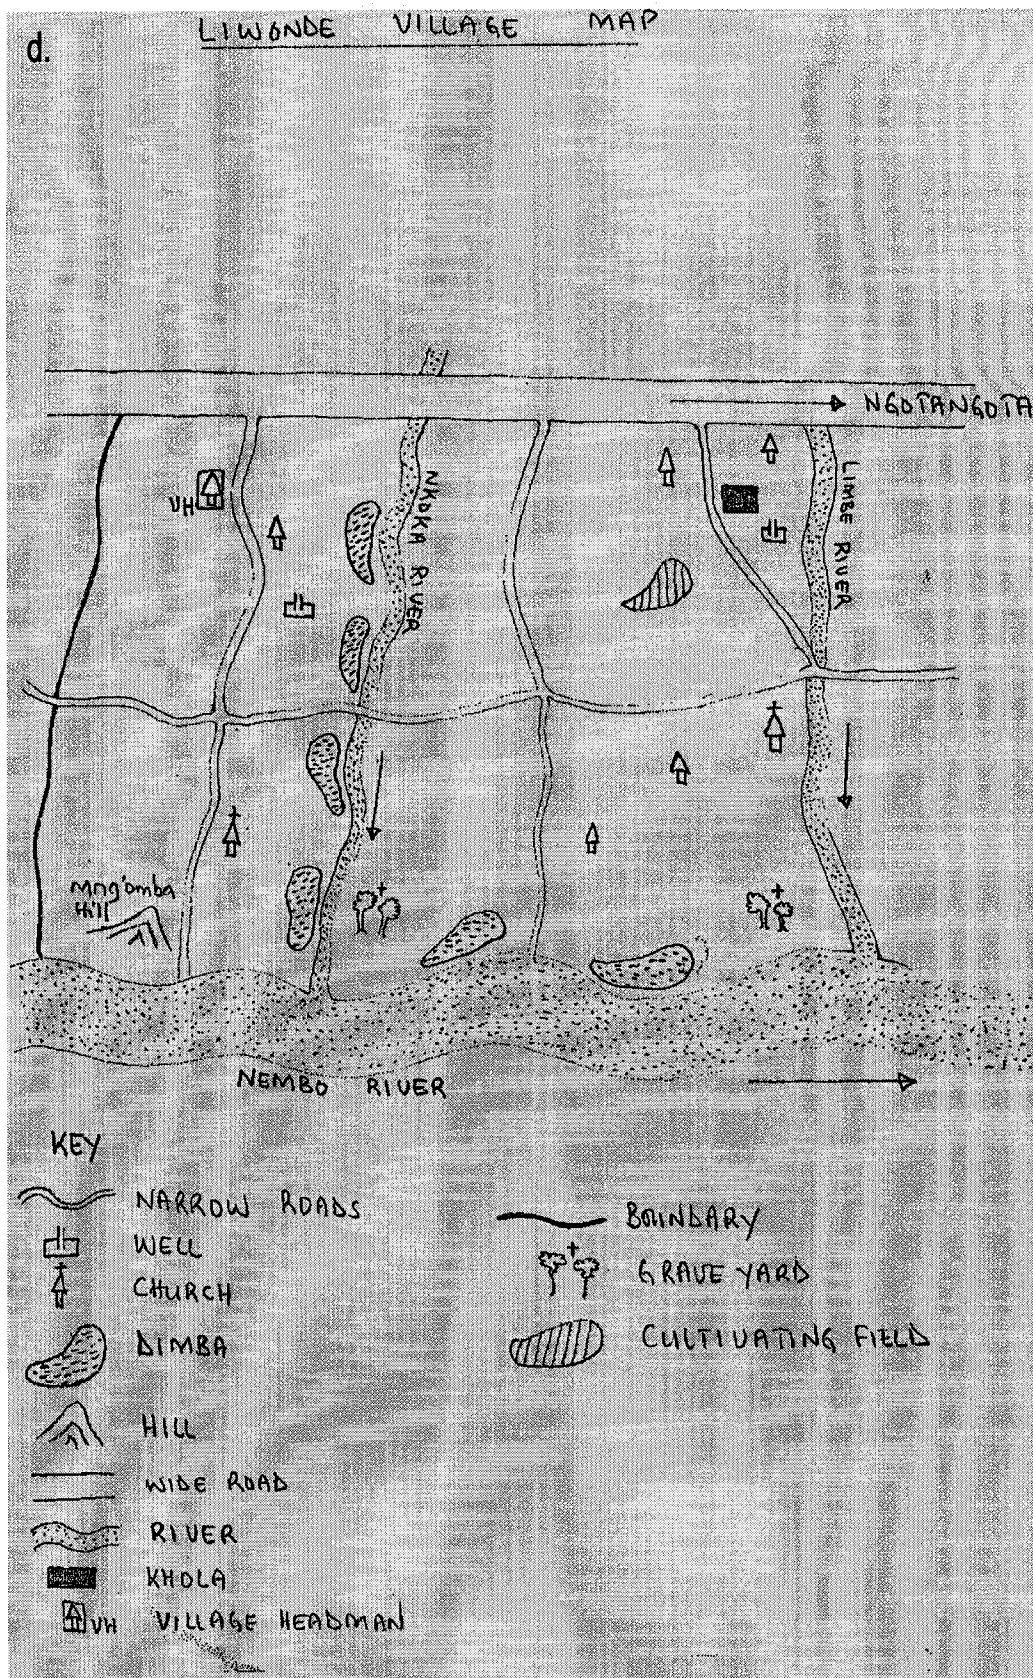 LIWONDE VILLAGE MAP
d.
NGOTANGOTA
VH
NKOKA RIVER
LIMBE RIVER
Mng'omba
Hill
NEMBO RIVER
KEY
NARROW ROADS
WELL
CHURCH
DIMBA
HILL
WIDE ROAD
RIVER
KHOLA
VH VILLAGE HEADMAN
BOUNDARY
GRAVE YARD
CULTIVATING FIELD